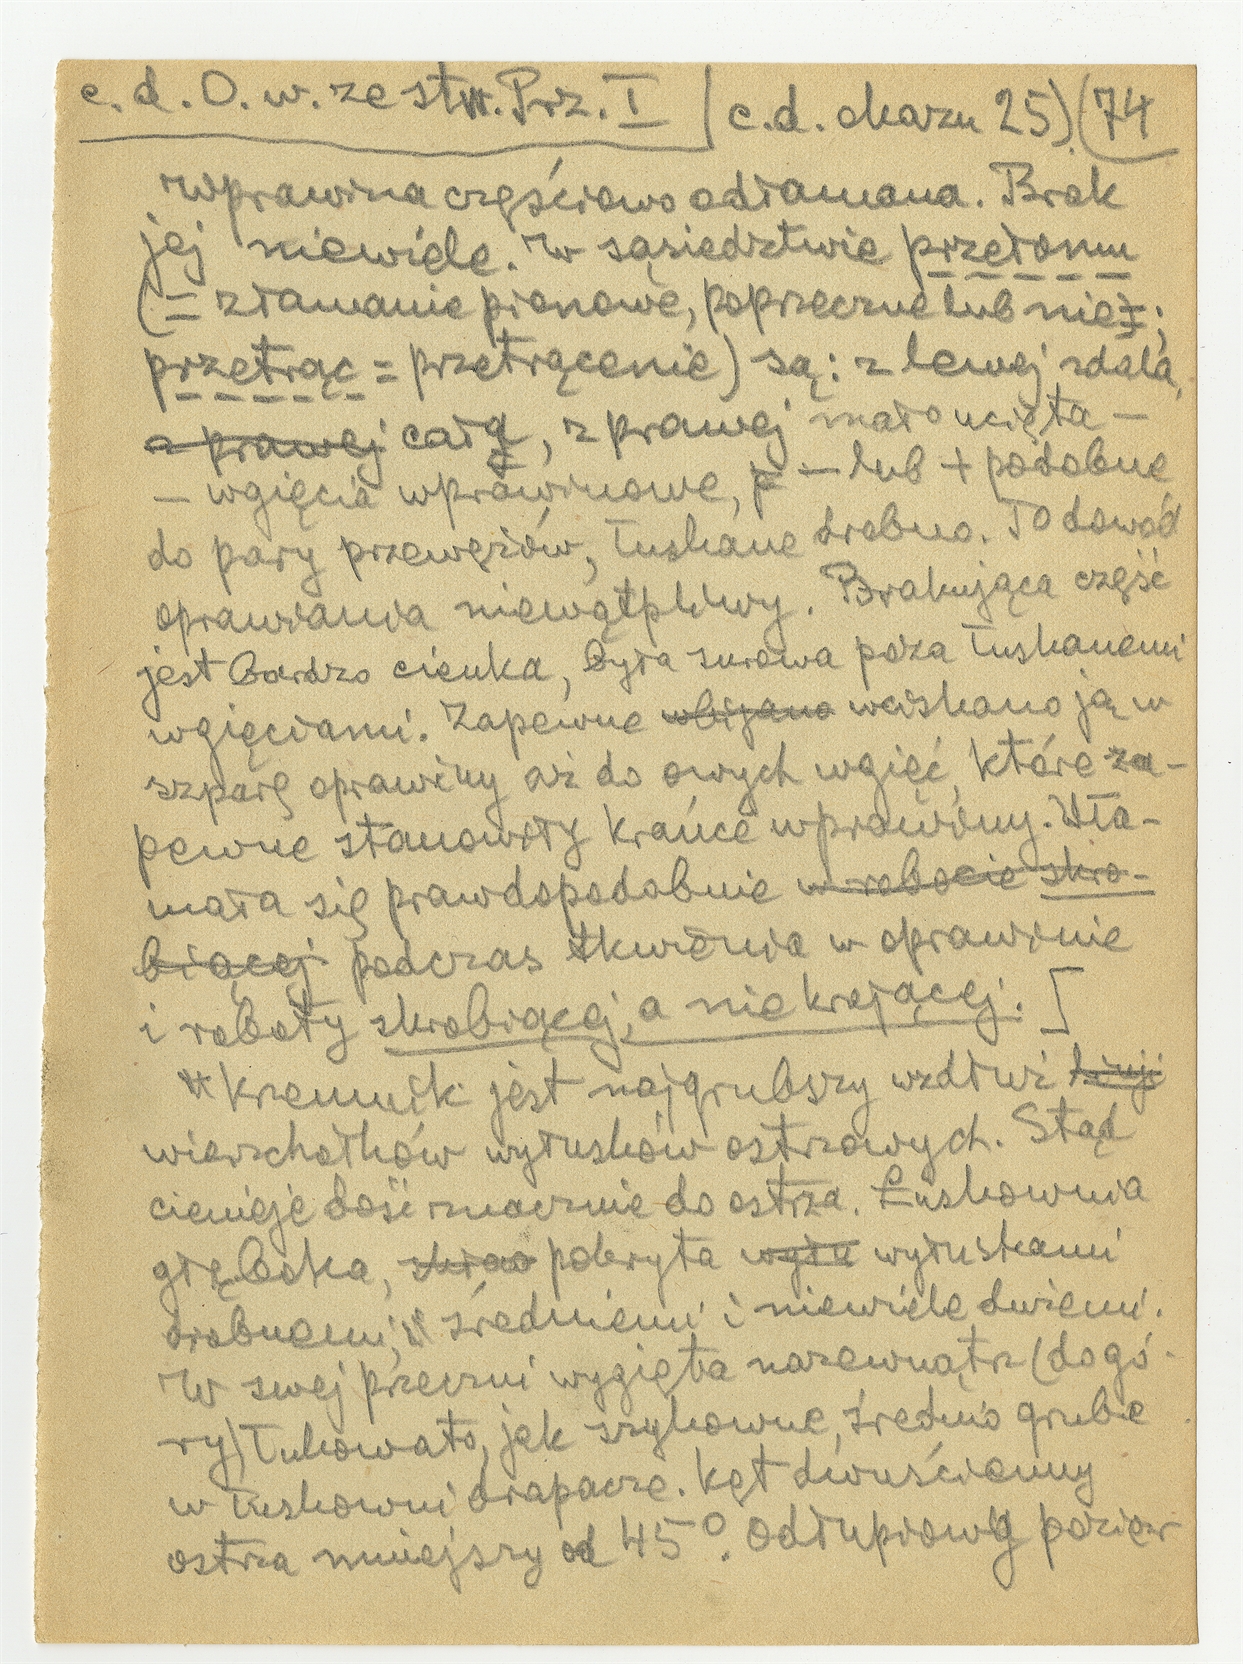 c.d. O. w. ze stw. Prz. I | c.d. okazu 25) (74
Wprawina częściowo odłamana. Brak
jej niewiele. W sąsiedztwie przełomu
(= złamanie pionowe, poprzeczne lub nie;
przetrąc = przetrącenie) są: z lewej zdala,
z prawej całą, z prawej mało ucięta –
– wgięcia wprawinowe, – lub + podobne
do pary przewęzów, łuskane drobno. To dowód
oprawiania niewątpliwy. Brakująca część
jest bardzo cienka, była surowa poza łuskanemi
wgięciami. Zapewne wbijano wciskano ją w
szparę oprawiny aż do owych wgięć, które za-
pewne stanowiły krańce wprawiny. Uła-
mała się prawdopodobnie w robocie skro-
biącej podczas tkwienia w oprawinie
i roboty skrobiącej, a nie krającej. ]
Krzemnik jest najgrubszy wzdłuż linji
wierzchołków wyłusków ostrzowych. Stąd
cienieje dość znacznie do ostrza. Łuskownia
głęboka, pokryta wyłu wyłuskami
drobnemi, średniemi i niewiele dużemi.
W swej przeczni wygięta nazewnątrz (do gó-
ry) łukowato, jak szykowne, średnio grube
w łuskowni drapacze. Kąt dwuścienny
ostrza mniejszy od 45°. Odłupiowy poziom